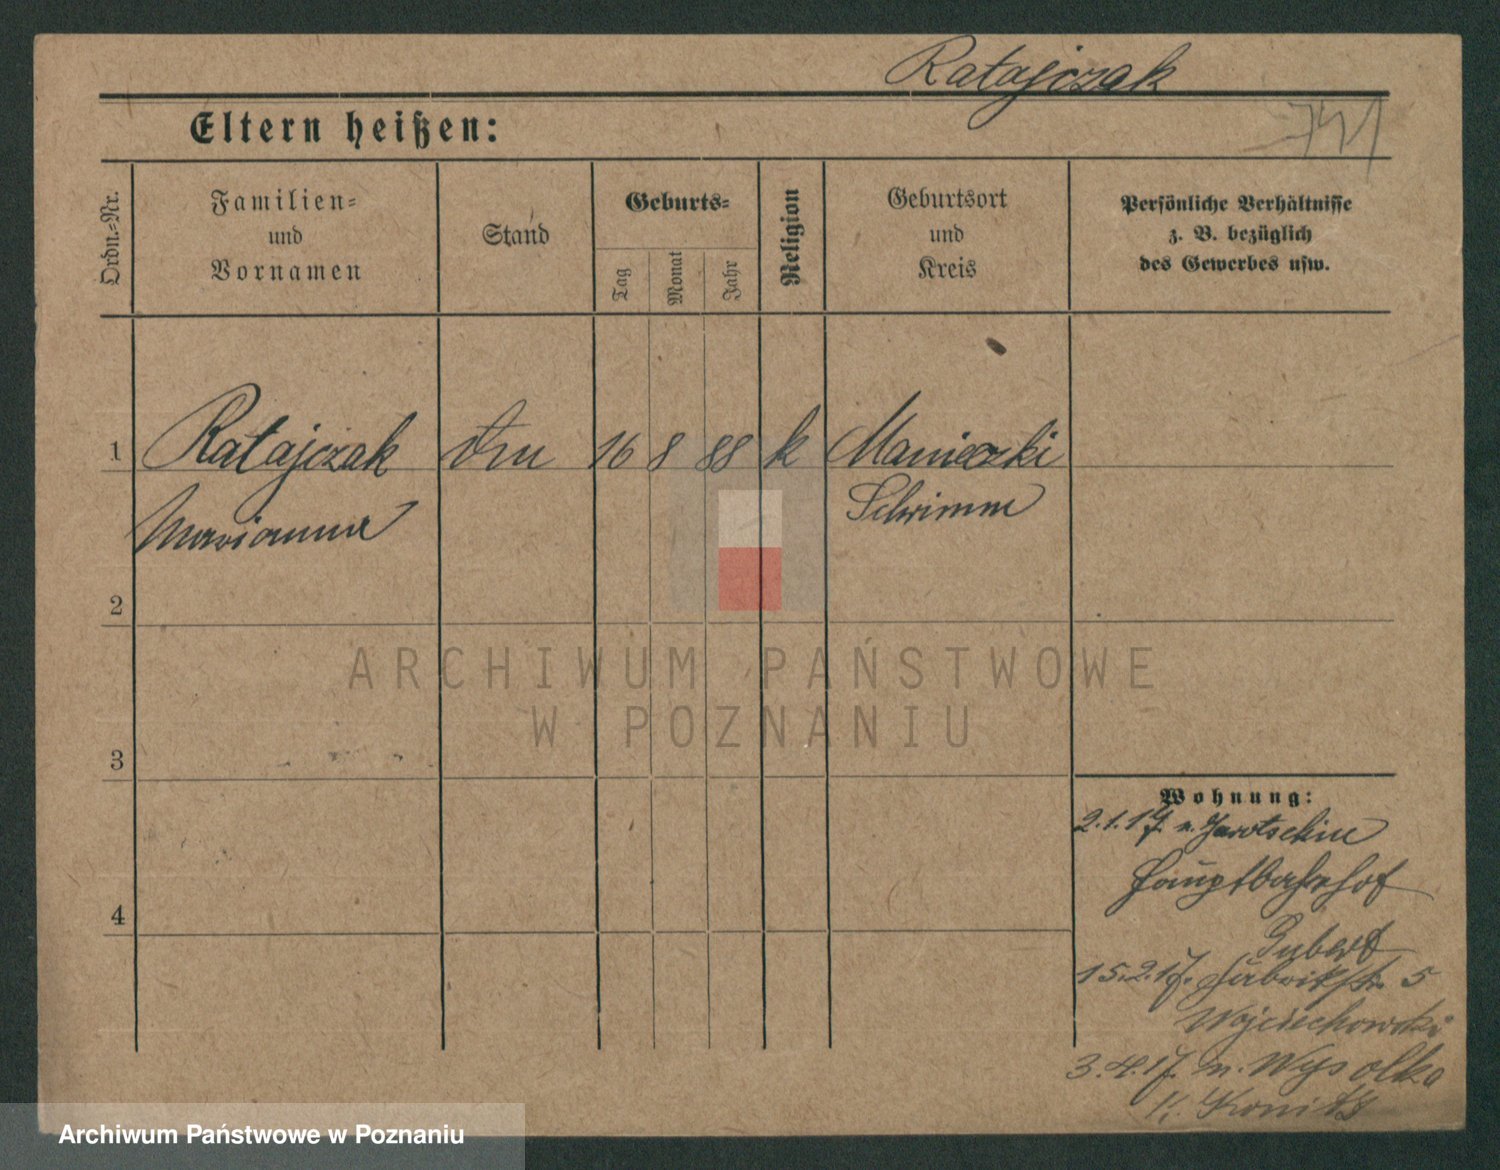 Ratajczak
741
Eltern heißen:
Ordn.-Nr.
Familien-
und
Vornamen
Stand
Geburts-
Tag
Monat
Jahr
Religion
Geburtsort
und
Kreis
Persönliche Verhältnisse
z. B. bezüglich
des Gewerbes usw.
1 Ratajczak 16 8 88 k Manieczki
Marianna Schrimm
2
3
4
Wohnung:
2.1.17. n. Jarotschin
Hauptbahnhof
15.2.17. Fabrikstr. 5
Wojciechowski
3.4.17. n. Wysolka
K. Konitz
ARCHIWUM PAŃSTWOWE
W POZNANIU
Archiwum Państwowe w Poznaniu